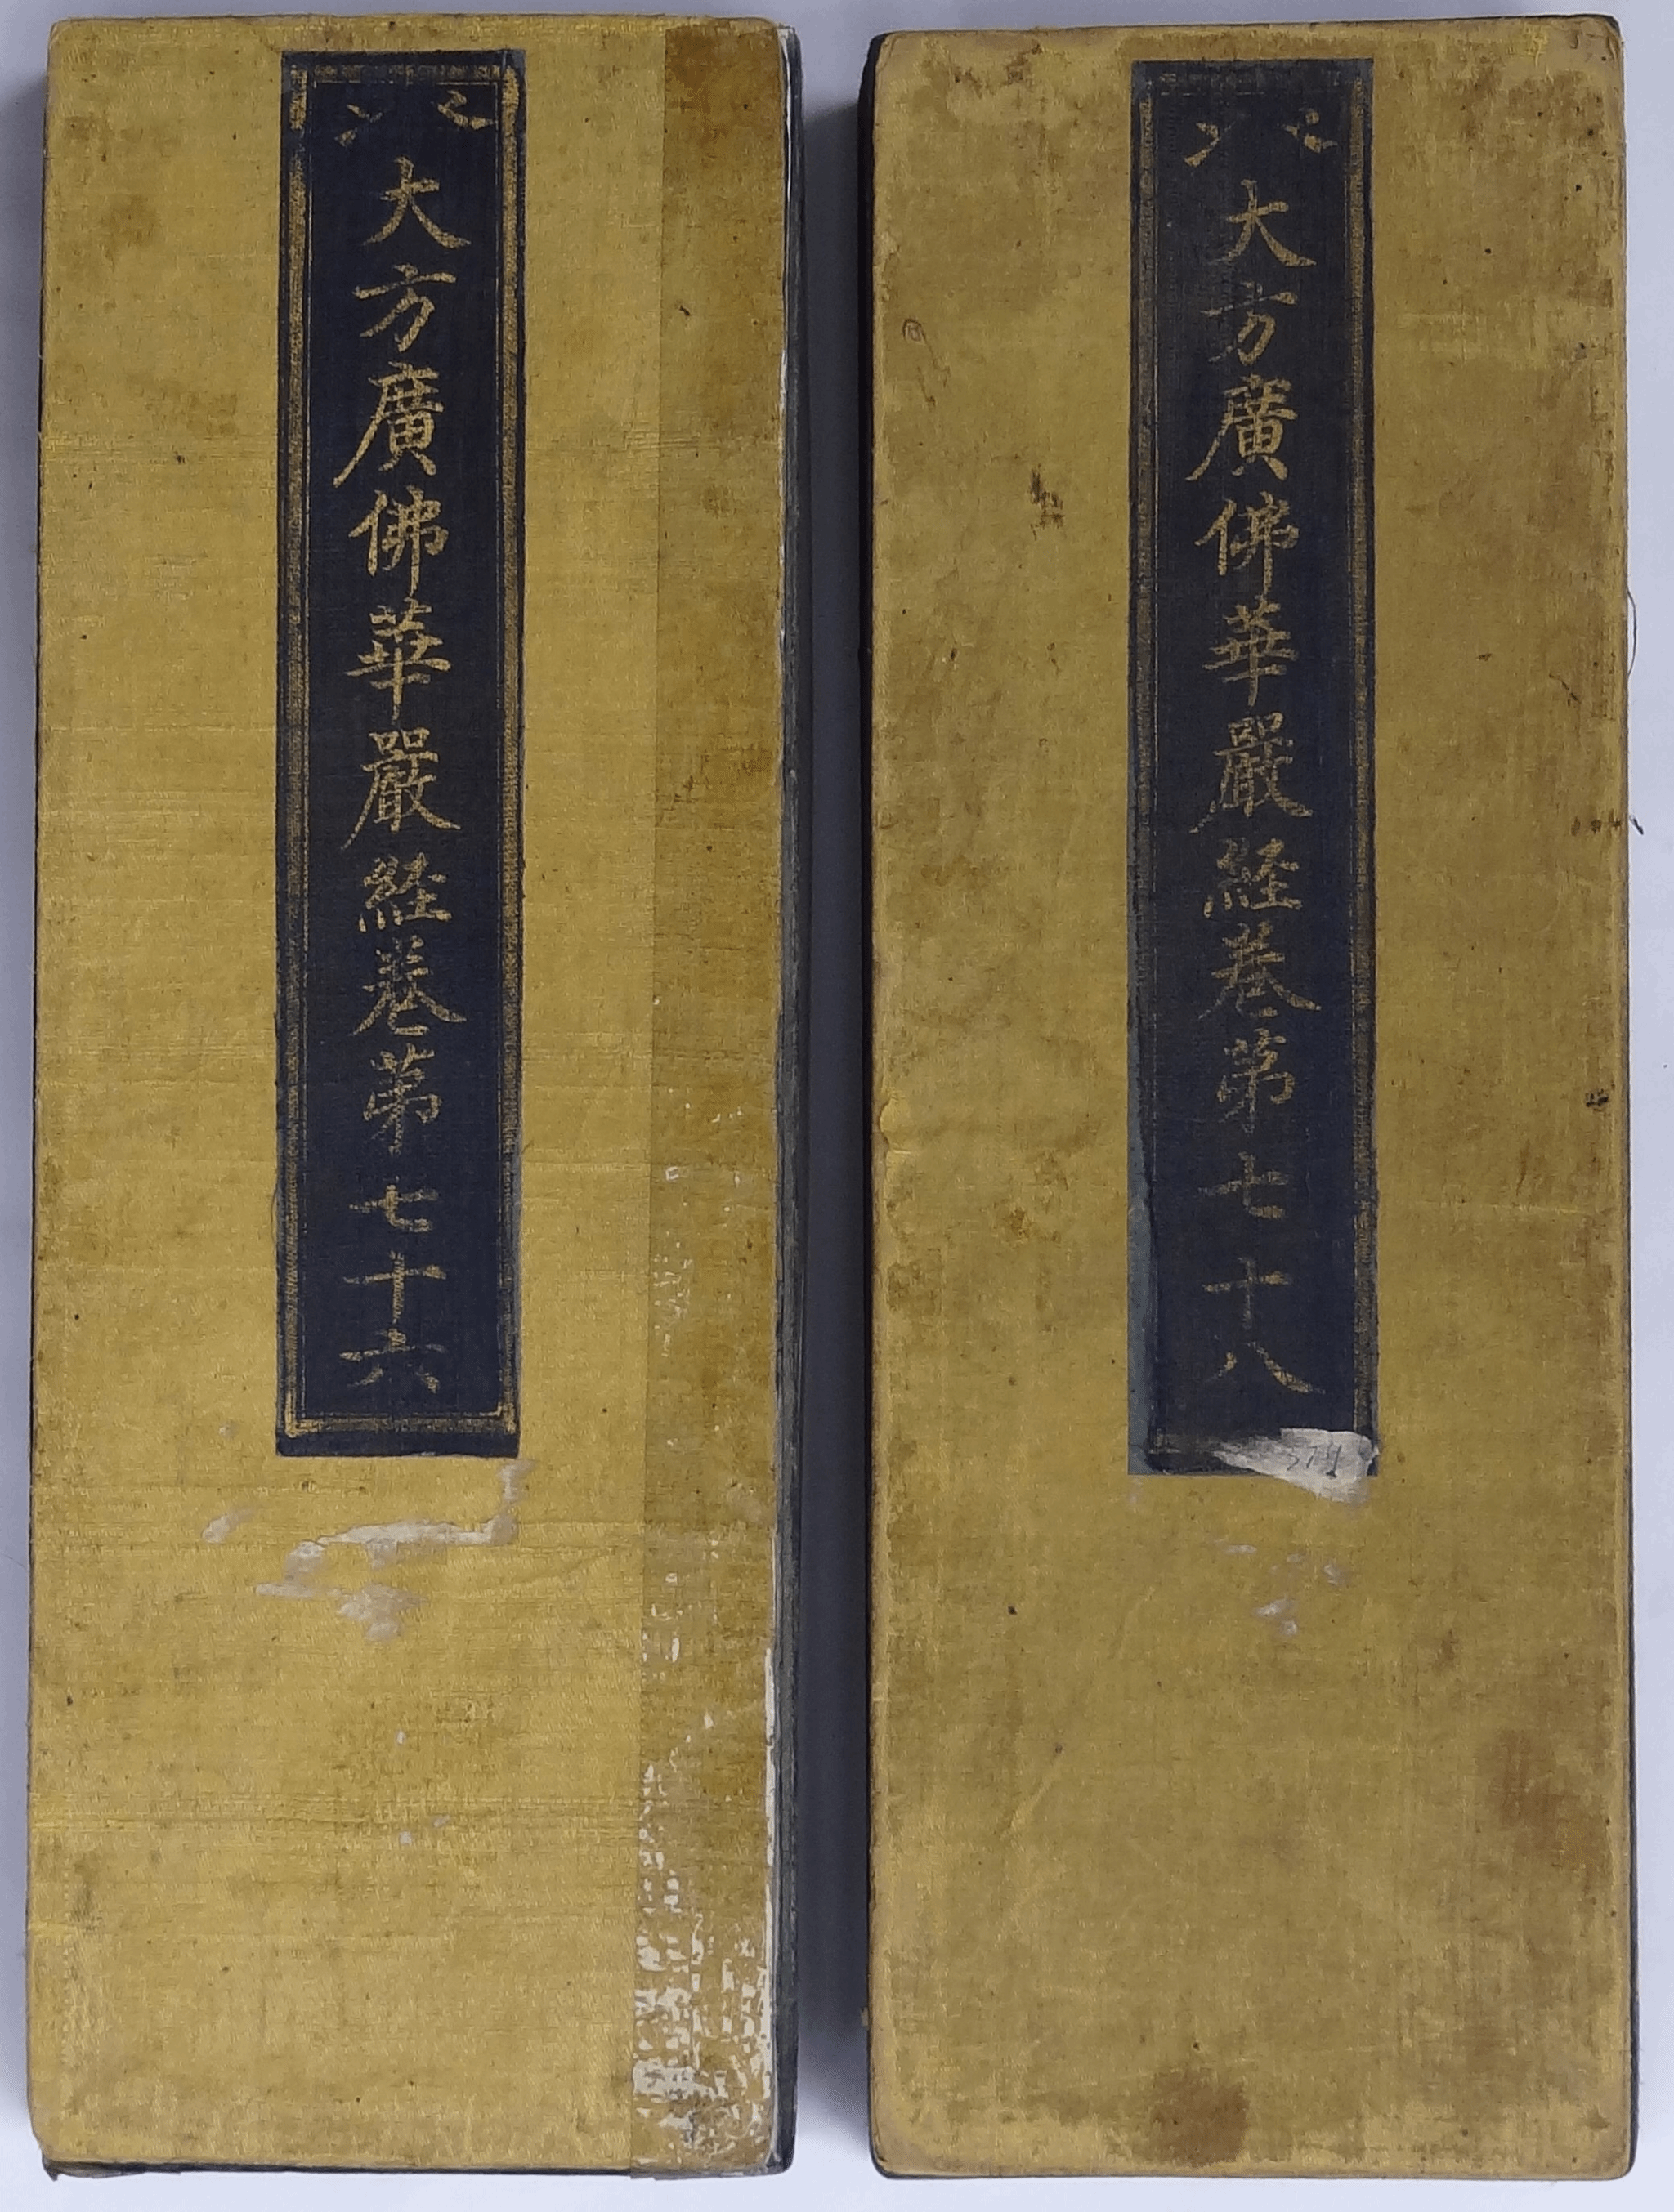 大方廣佛華嚴経卷第七十六
大方廣佛華嚴経卷第七十八